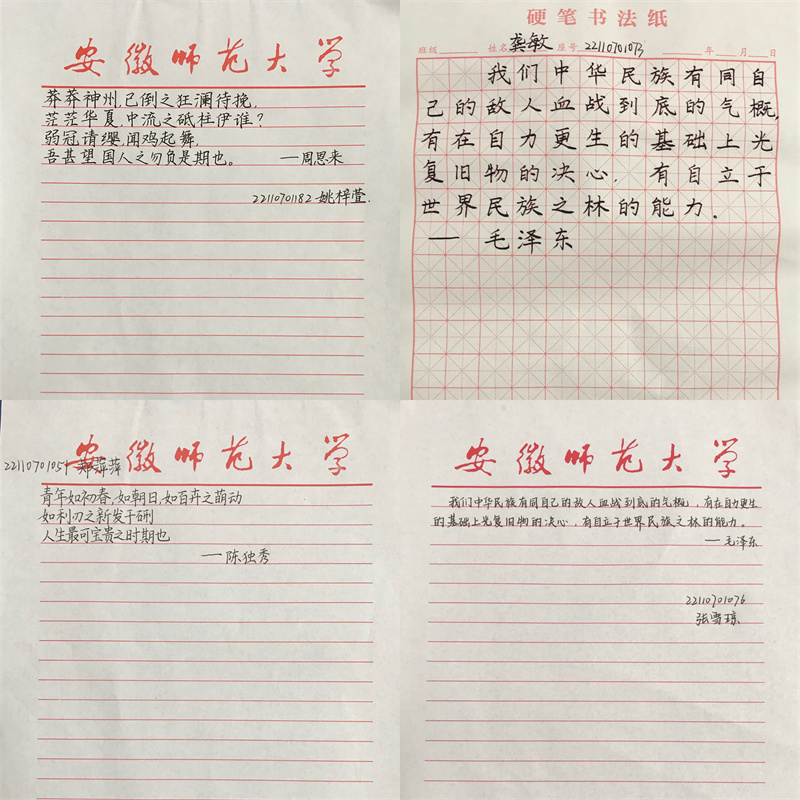 安徽师范大学
莽莽神州,已倒之狂澜待挽,
茫茫华夏,中流之砥柱伊谁?
弱冠请缨,闻鸡起舞,
吾甚望国人之勿负是期也。 —周恩来
22110701182 姚梓萱.
硬笔书法纸
班级 姓名 龚敏 座号 22110701073 年 月 日
我们中华民族有同自
己的敌人血战到底的气概,
有在自力更生的基础上光
复旧物的决心, 有自立于
世界民族之林的能力.
— 毛泽东
安徽师范大学
22110701051
青年如初春,如朝日,如百卉之萌动
如利刃之新发于硎
人生最可宝贵之时期也
—陈独秀
安徽师范大学
我们中华民族有同自己的敌人血战到底的气概,有在自力更生
的基础上光复旧物的决心,有自立于世界民族之林的能力。
—毛泽东
22110701076
张雪琼